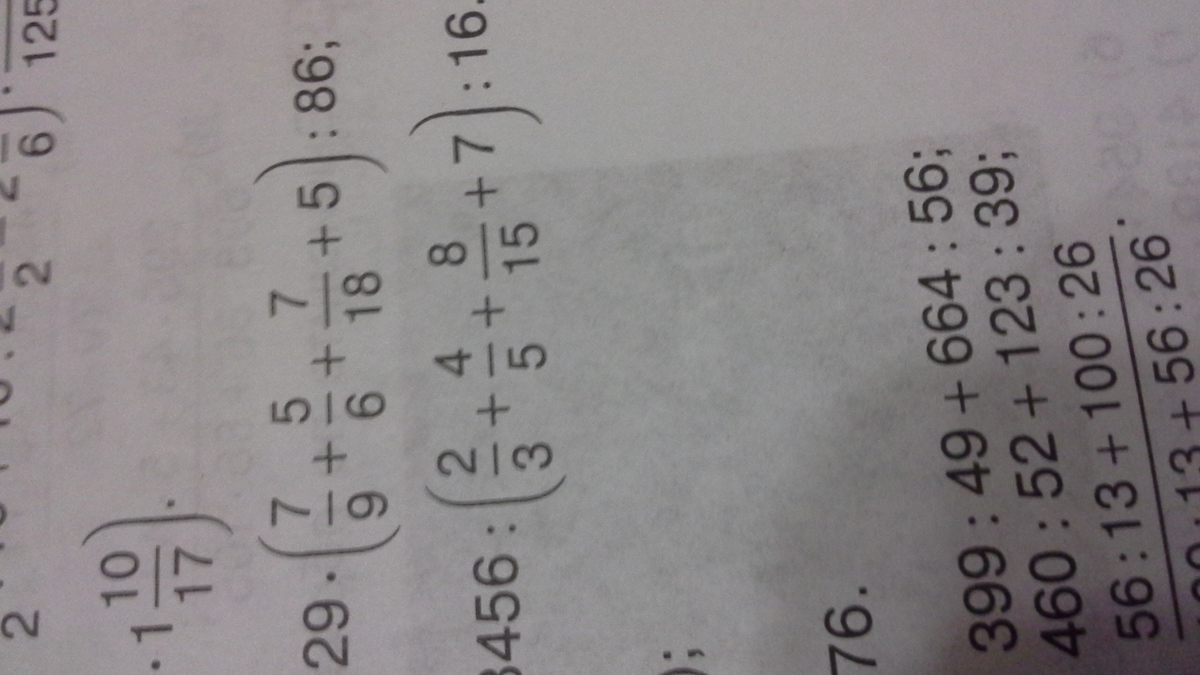 · 1 10/17).
29 · (7/9 + 5/6 + 7/18 + 5) : 86;
3456 : (2/3 + 4/5 + 8/15 + 7) : 16.
);
76.
399 : 49 + 664 : 56;
460 : 52 + 123 : 39;
56 : 13 + 100 : 26
: 13 + 56 : 26.